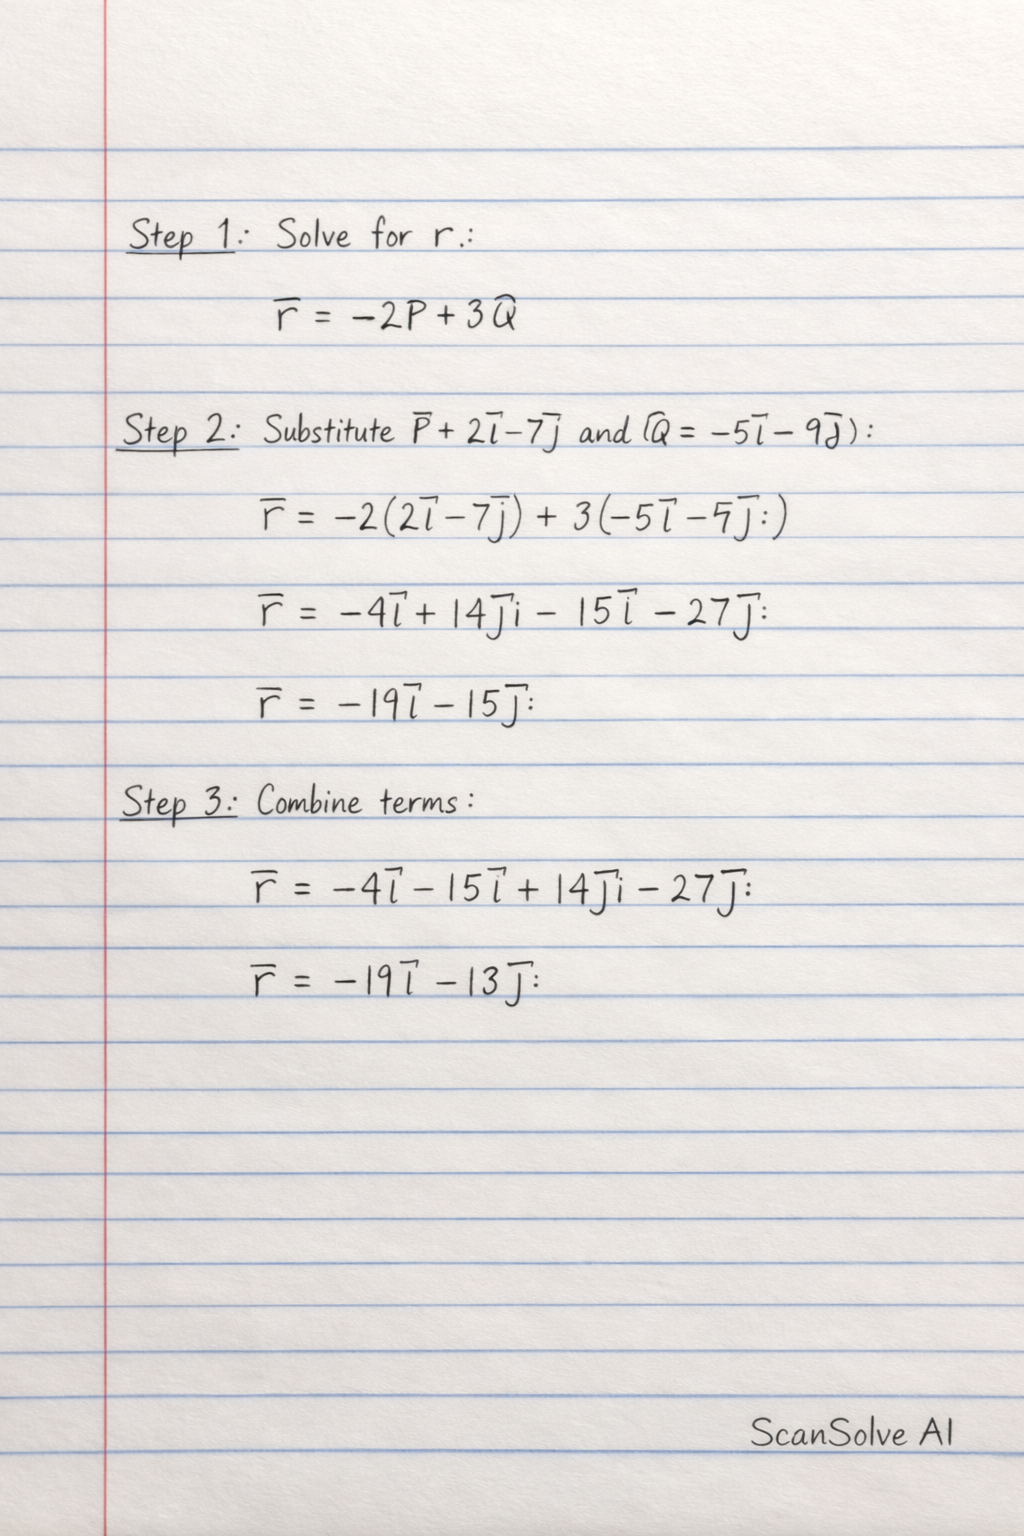 Step 1: Solve for r.:
r̅ = -2P + 3Q̅
Step 2: Substitute P̅ + 2i̅ - 7j̅ and (Q̅ = -5i̅ - 9j̅):
r̅ = -2(2i̅ - 7j̅) + 3(-5i̅ - 5j̅:)
r̅ = -4i̅ + 14j̅i - 15i̅ - 27j̅:
r̅ = -19i̅ - 15j̅:
Step 3: Combine terms:
r̅ = -4i̅ - 15i̅ + 14j̅i - 27j̅:
r̅ = -19i̅ - 13j̅:
ScanSolve AI